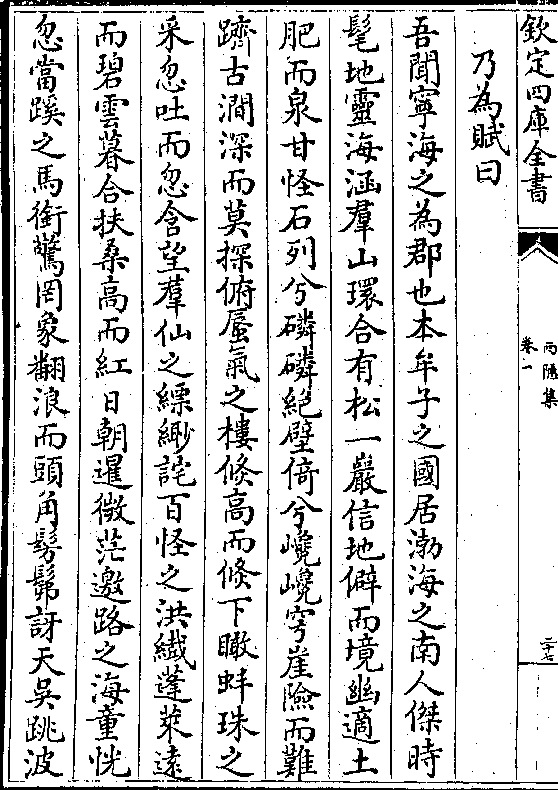 欽定四庫全書
西隱集
卷一
二十七
乃為賦曰
吾聞寧海之為郡也本牟子之國居渤海之南人傑時
髦地靈海涵羣山環合有松一巖信地僻而境幽適土
肥而泉甘怪石列兮磷磷絕壁倚兮巉巉穹崖險而難
躋古澗深而莫探俯蜃氣之樓倐高而倐下瞰蚌珠之
采忽吐而忽含望羣仙之縹緲詫百怪之洪纎蓬萊遠
而碧雲暮合扶桑高而紅日朝暹微茫邀路之海童恍
忽當蹊之馬銜驚罔象翻浪而頭角髣髴訝天吳跳波